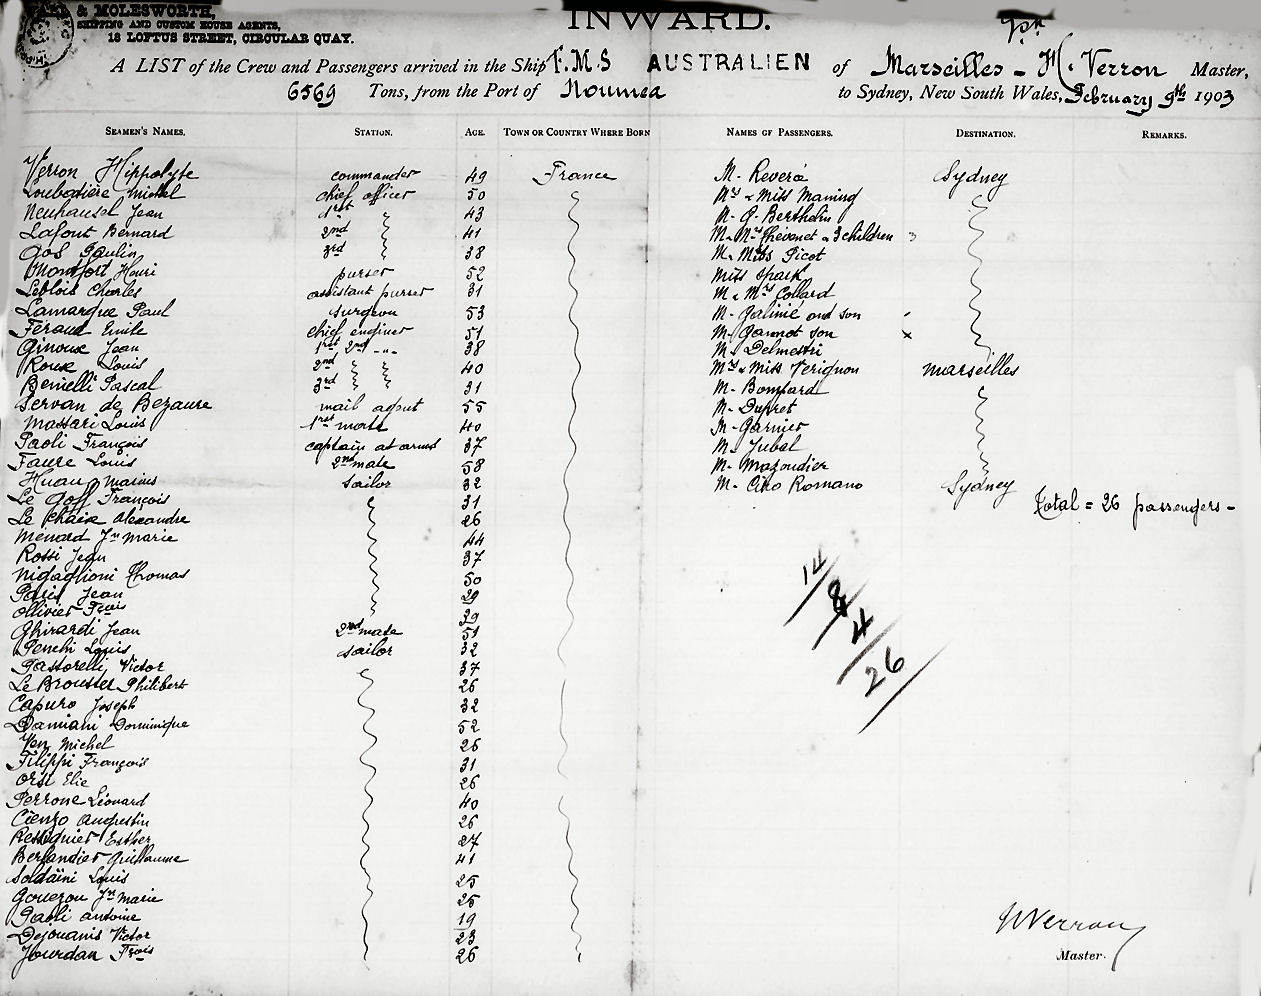 & MOLESWORTH,
SHIPPING AND CUSTOM HOUSE AGENTS,
18 LOFTUS STREET, CIRCULAR QUAY.
INWARD.
A LIST of the Crew and Passengers arrived in the Ship F.M.S AUSTRALIEN of Marseilles - H. Verron Master,
6569 Tons, from the Port of Noumea to Sydney, New South Wales, February 9th 1903
SEAMEN'S NAMES. STATION. AGE. TOWN OR COUNTRY WHERE BORN NAMES OF PASSENGERS. DESTINATION. REMARKS.
Verron Hippolyte commander 49 France M. Revera Sydney
Loubatière Michel chief officer 50 Mrs & Miss Maning
Neuhausel Jean 1rst " 43 M. G. Berthelin
Lafont Bernard 2nd " 41 M. Mrs Thévenet & 3 children
Gos Paulin 3rd " 38 M. Miss Picot
Montfort Henri purser 52 Miss Spark
Leblois Charles assistant purser 31 M & Mrs Collard
Lamarque Paul surgeon 53 M. Galinié and son
Féraud Emile chief engineer 51 M. Gannot son x
Ginoux Jean 1rst 2nd -"- 38 M. Delmestri
Roux Louis 2nd " " 40 Mrs & Miss Verignon Marseilles
Benielli Pascal 3rd " " 31 M. Bompard
Servan de Bezaure mail agent 55 M. Dupret
Massari Louis 1rst mate 40 M. Garnier
Paoli François captain at arms 37 M. Jubal
Faure Louis 2nd mate 58 M. Mazoudier
Huau Marius sailor 32 M. Ciro Romano Sydney
Le Goff François 31 Total = 26 passengers -
Le Chaix Alexandre 26
Ménard Jn Marie 44
Rossi Jean 37
Nigaglioni Thomas 50
Paris Jean 29
Ollivier Frois 39
Ghirardi Jean 2nd mate 51
Penchi Louis sailor 32
Pastorelli Victor 37
Le Brouster Philibert 26
Capuro Joseph 32
Damiani Dominique 52
Yen Michel 26
Filippi François 31
Orsi Elie 26
Perrone Léonard 40
Cienzo Augustin 26
Resseguier Esther 27
Berlandier Guillaume 41
Soldaïni Louis 25
Gouezou Jn Marie 26
Paoli Antoine 19
Dejouanis Victor 23
Jourdan Frois 26
14
8
4
26
H Verron
Master.